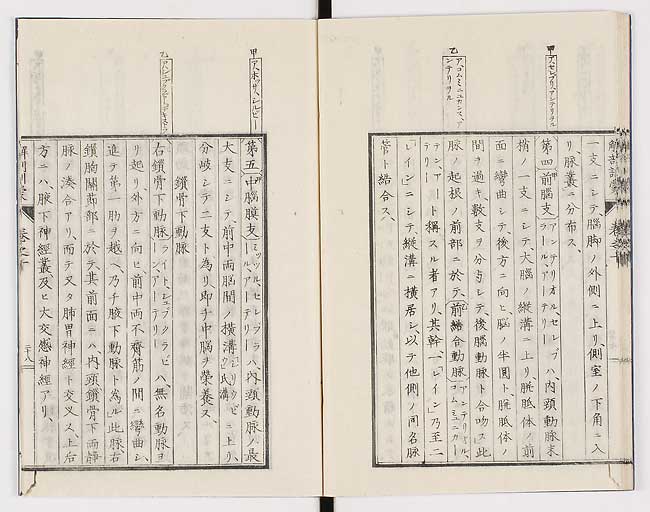 甲 ア、セレブリ、アンテリヲル
乙 ア、コムミュニカンス、アンテリヲル
一支ニシテ、腦脚ノ外側ニ上リ、側室ノ下角ニ入
リ、脉叢ニ分布ス、
第四 前腦支 アンテリオル、セレブラール、アーテリー ハ、内頸動脉末
梢ノ一支ニシテ、大腦ノ縱溝ニ上リ、胼胝体ノ前
面ニ彎曲シテ、後方ニ向ヒ、腦ノ半圓ト、胼胝体ノ
間ヲ過キ、數支ヲ分与シテ、後腦動脉ト合吻ス、此
脉ノ起根ノ前部ニ於テ、前結合動脉 アンテリオル、コムミュニカーテン、アー
テリー ト稱スル者アリ、其幹、一「レイン」乃至二
「レイン」ニシテ、縱溝ニ横居シ、以テ他側ノ同名脉
管ト結合ス、
解剖訓蒙 卷之十
甲 ア、ホッサ、シルビー
第五 中腦膜支 ミッヅル、セレブラール、アーテリー ハ、内頸動脉ノ最
大支ニシテ、前中両腦間ノ横溝 シルウビ氏溝 ニ上リ、
分岐シテ二支ト為リ、即チ中腦ヲ榮養ス、
鎖骨下動脉
右鎖骨下動脉 ライト、シュブクラビアン、アーテリー ハ、無名動脉ヨ
リ起リ、外方ニ向ヒ、前中両不齊筋ノ間ニ彎曲シ、
進テ第一肋ヲ越ヘ、乃チ腋下動脉ト為ル、此脉、右
鎖胸關節部ニ於テ、其前面ニハ、内頸鎖骨下両靜
脉ノ湊合アリ、而テ又タ肺胃神經ト交叉ス、上后
方ニハ、腋下神經叢、及ヒ大交感神經アリ、
解剖訓蒙 卷之十 二十八